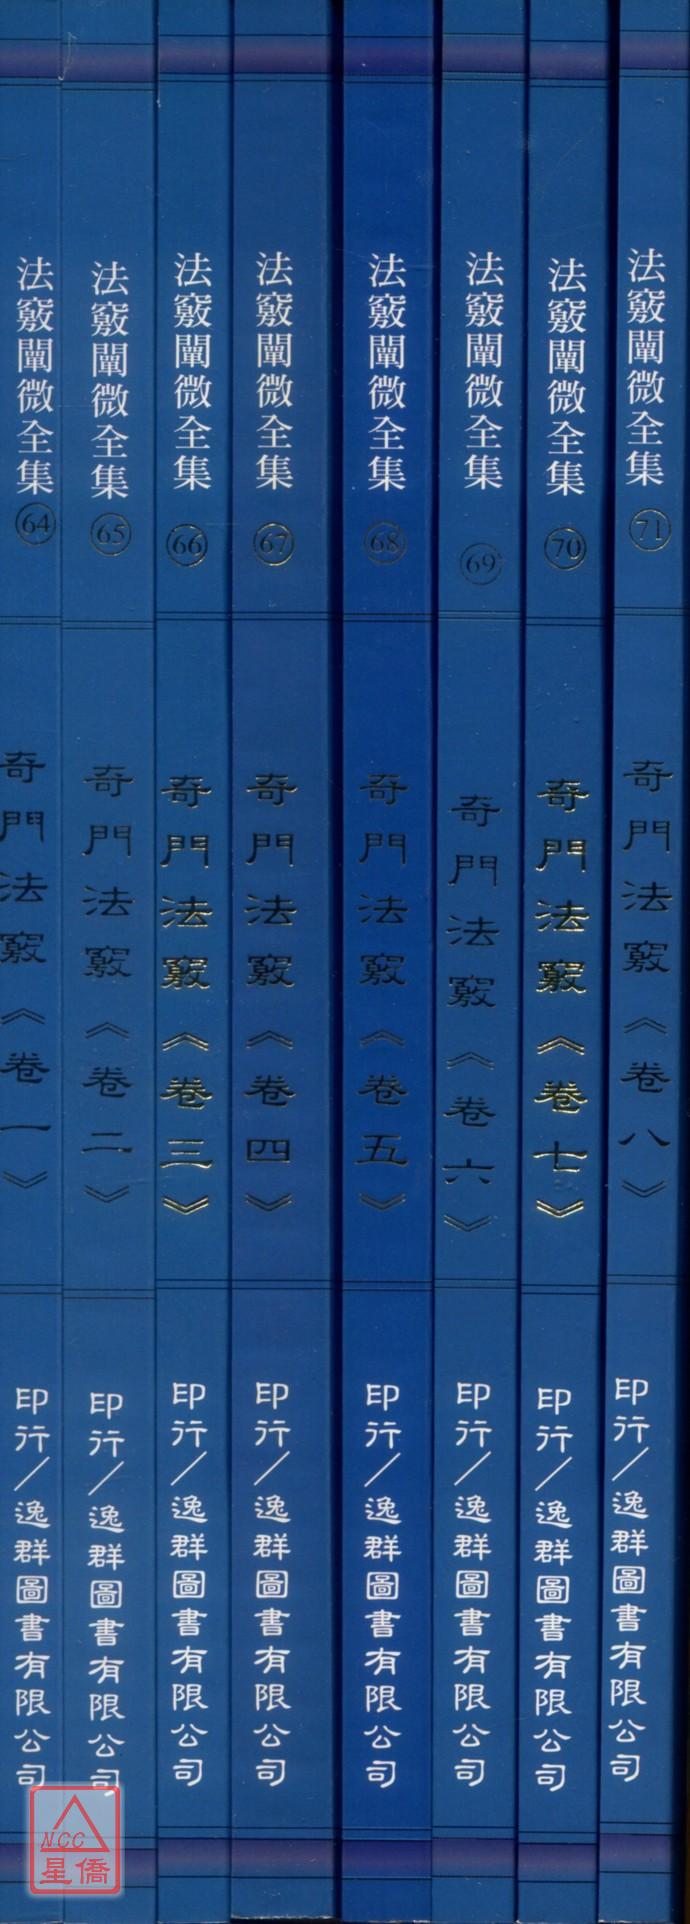 法竅闡微全集 64
奇門法竅《卷一》
印行/逸群圖書有限公司
法竅闡微全集 65
奇門法竅《卷二》
印行/逸群圖書有限公司
法竅闡微全集 66
奇門法竅《卷三》
印行/逸群圖書有限公司
法竅闡微全集 67
奇門法竅《卷四》
印行/逸群圖書有限公司
法竅闡微全集 68
奇門法竅《卷五》
印行/逸群圖書有限公司
法竅闡微全集 69
奇門法竅《卷六》
印行/逸群圖書有限公司
法竅闡微全集 70
奇門法竅《卷七》
印行/逸群圖書有限公司
法竅闡微全集 71
奇門法竅《卷八》
印行/逸群圖書有限公司
NCC
星僑